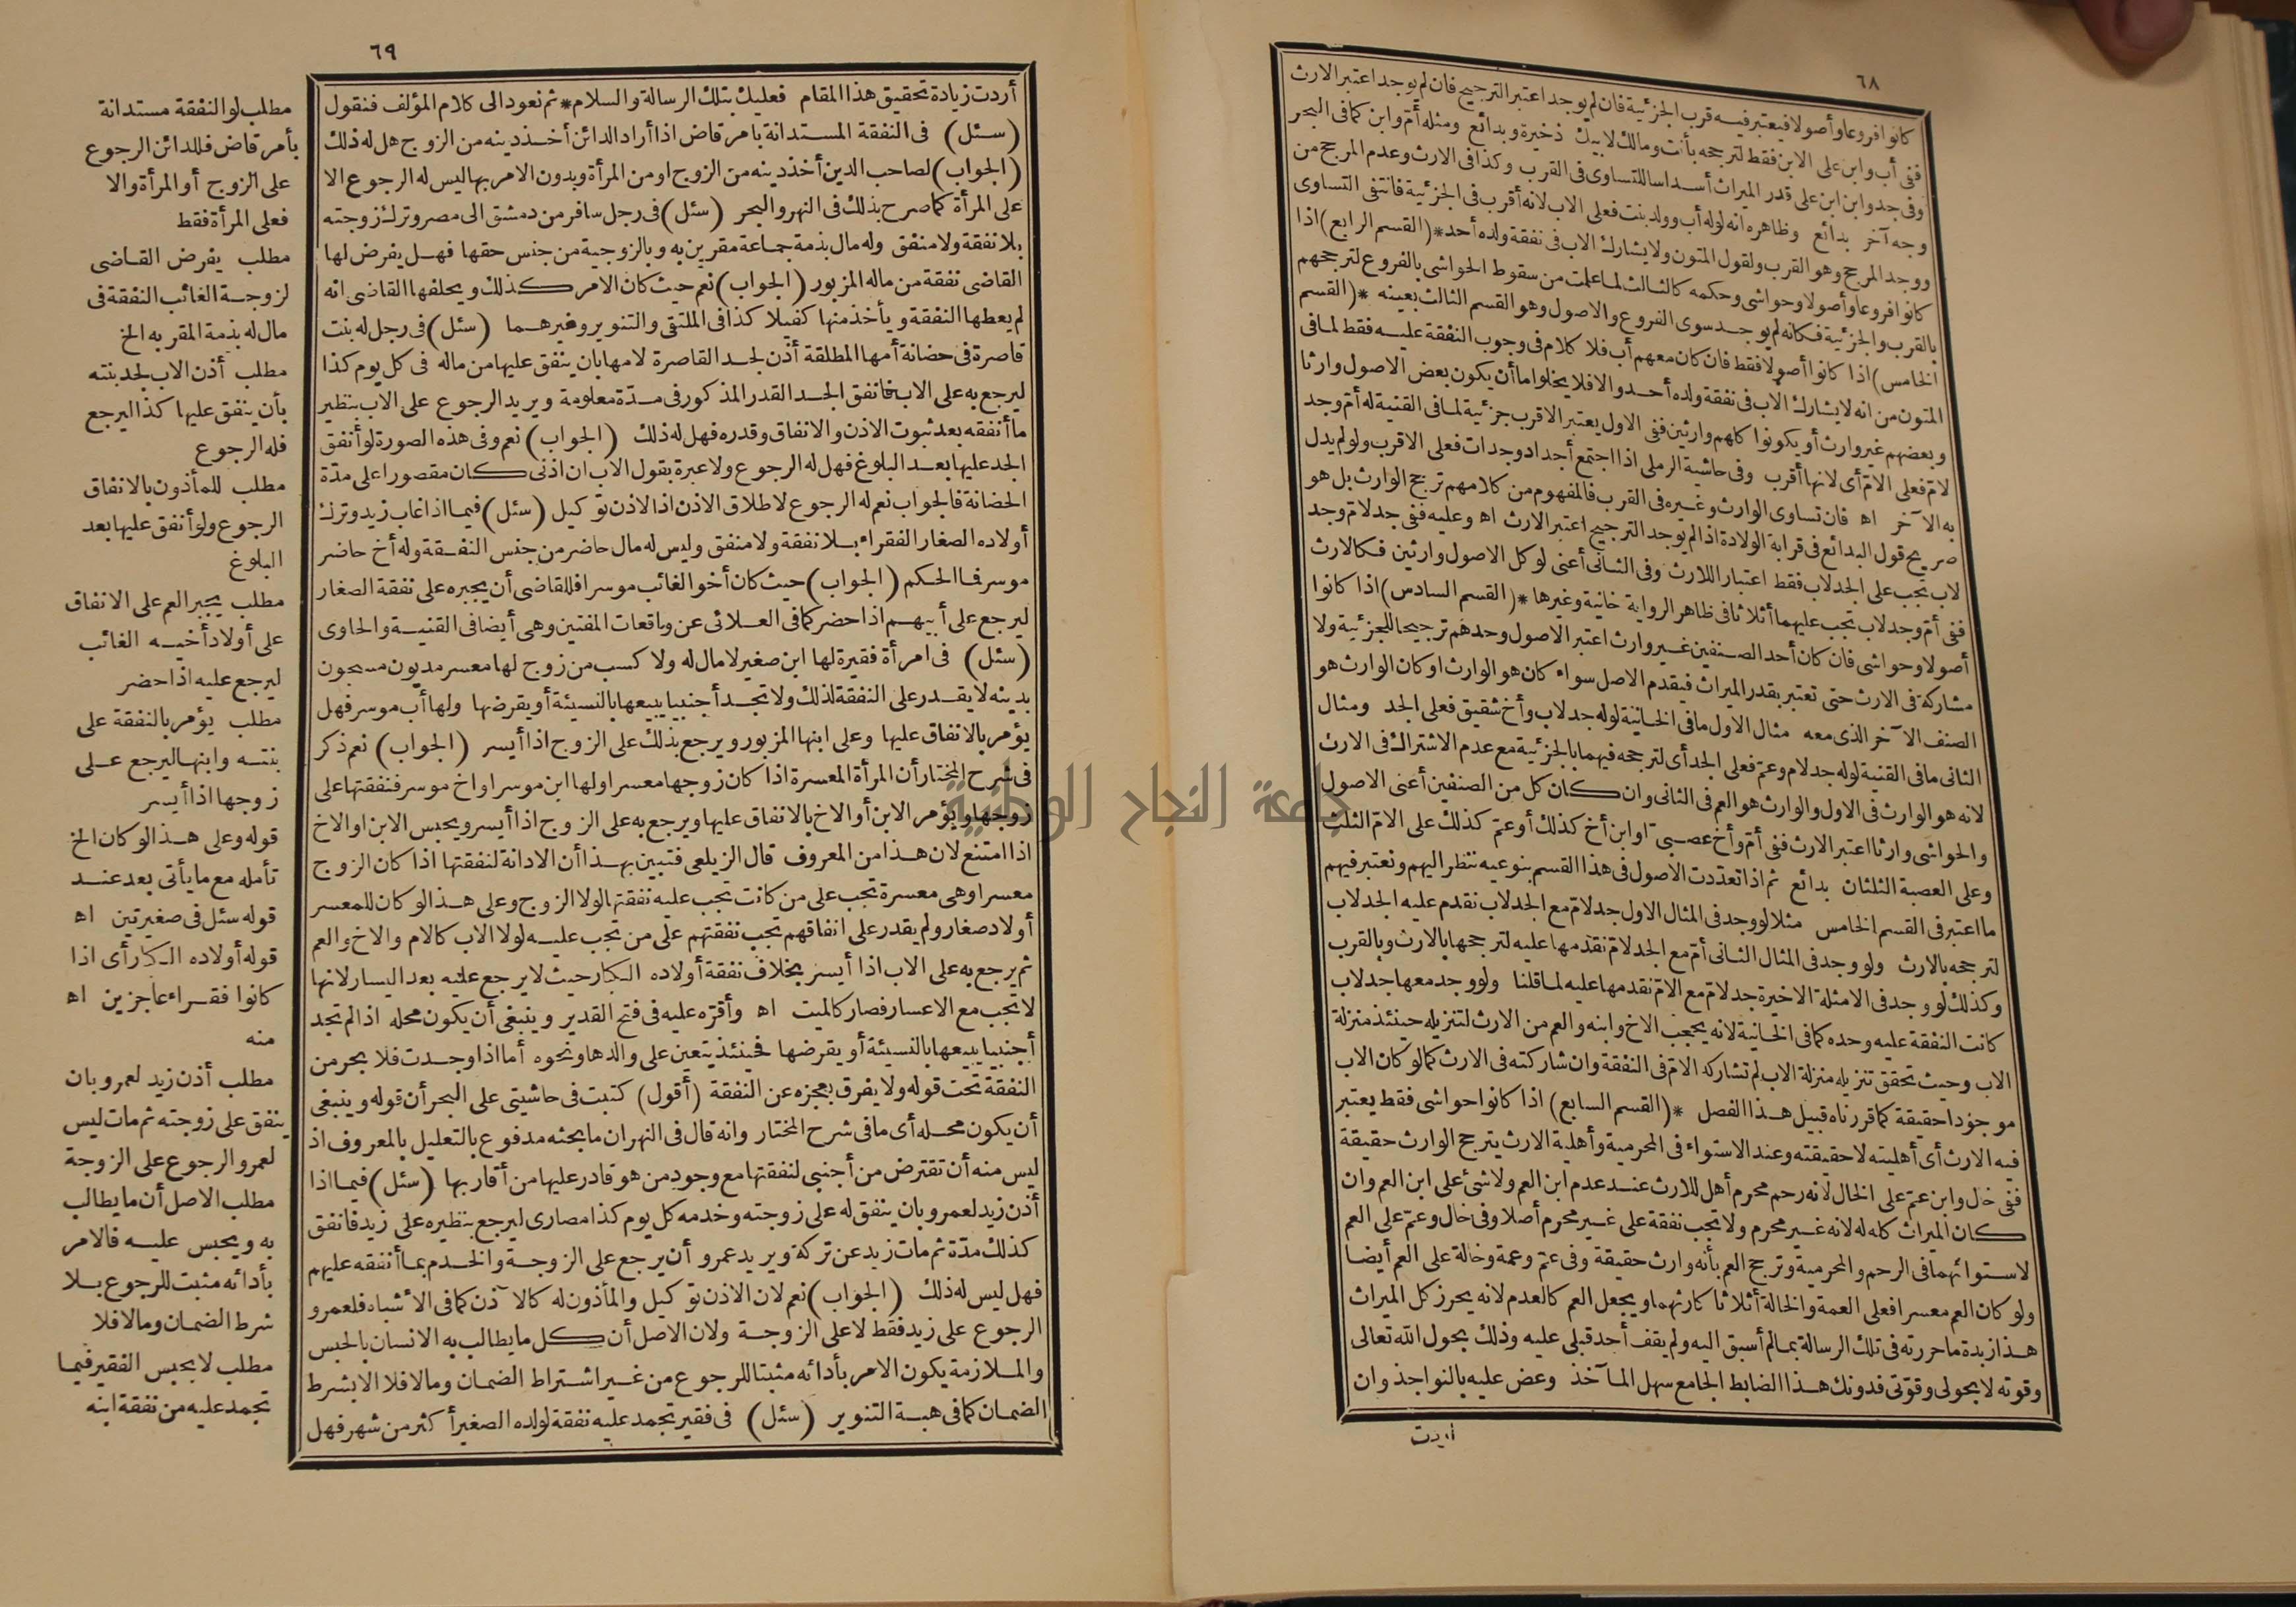 ٦٨
كانوا فروعا وأصولا فيعتبر فيه قرب الجزئية فان لم يوجد اعتبر الترجيح فان لم يوجد اعتبر الارث
ففى أب وابن على الابن فقط لترجحه بأنت ومالك لابيك ذخيرة وبدائع ومثله أم وابن كمافى البحر
وفى جد وابن ابن على قدر الميراث أسداسا للتساوى فى القرب وكذا فى الارث وعدم المرجح من
وجه آخر بدائع وظاهره أنه لوله أب وولد بنت فعلى الاب لانه أقرب فى الجزئية فانتفى التساوى
ووجد المرجح وهو القرب ولقول المتون ولا يشارك الاب فى نفقة ولده أحد * (القسم الرابع) اذا
كانوا فروعا وأصولا وحواشى وحكمه كالثالث لما علمت من سقوط الحواشى بالفروع لترجحهم
بالقرب والجزئية فكانه لم يوجد سوى الفروع والاصول وهو القسم الثالث بعينه * (القسم
الخامس) اذا كانوا أصولا فقط فان كان معهم أب فلا كلام فى وجوب النفقة عليه فقط لمافى
المتون من انه لا يشارك الأب فى نفقة ولده أحد والا فلا يخلوا ما أن يكون بعض الاصول وارثا
وبعضهم غير وارث أو يكونوا كلهم وارثين ففى الاول يعتبر الاقرب جزئية لمافى القنية له أم وجد
لام فعلى الام أى لانها أقرب وفى حاشية الرملى اذا اجتمع أجداد وجدات فعلى الاقرب ولو لم يدل
به الآخر اه فان تساوى الوارث وغيره فى القرب فالمفهوم من كلامهم ترجح الوارث بل هو
صريح قول البدائع فى قرابة الولادة اذا لم يوجد الترجيح اعتبر الارث اه وعليه ففى جد لام وجد
لاب تجب على الجد لاب فقط اعتبارا للارث وفى الثانى أعنى لو كل الاصول وارثين فكالارث
ففى أم وجد لاب تجب عليهما أثلاثا فى ظاهر الرواية خانية وغيرها * (القسم السادس) اذا كانوا
أصولا وحواشى فان كان أحد الصنفين غير وارث اعتبر الاصول وحدهم ترجيحا للجزئية ولا
مشاركة فى الارث حتى تعتبر بقدر الميراث فيقدم الاصل سواء كان هو الوارث او كان الوارث هو
الصنف الآخر الذى معه مثال الاول مافى الخانية لوله جد لاب وأخ شقيق فعلى الجد ومثال
الثانى مافى القنية لوله جد لام وعم فعلى الجد أى لترجحه فيهما بالجزئية مع عدم الاشتراك فى الارث
لانه هو الوارث فى الاول والوارث هو العم فى الثانى وان كان كل من الصنفين أعنى الاصول
والحواشى وارثا اعتبر الارث ففى أم وأخ عصبى او ابن أخ كذلك أو عم كذلك على الام الثلث
وعلى العصبة الثلثان بدائع ثم اذا تعددت الاصول فى هذا القسم بنوعيه ننظر اليهم ونعتبر فيهم
ما اعتبر فى القسم الخامس مثلا لو وجد فى المثال الاول جد لام مع الجد لاب نقدم عليه الجد لاب
لترجحه بالارث ولو وجد فى المثال الثانى أم مع الجد لام نقدمها عليه لترجحها بالارث وبالقرب
وكذلك لو وجد فى الامثلة الاخيرة جد لام مع الام نقدمها عليه لما قلنا ولو وجد معها جد لاب
كانت النفقة عليه وحده كمافى الخانية لانه يحجب الاخ وابنه والعم من الارث لتنزيله حينئذ منزلة
الاب وحيث تحقق تنزيله منزلة الاب لم تشاركه الام فى النفقة وان شاركته فى الارث كمالو كان الاب
موجودا حقيقة كما قررناه قبيل هذا الفصل * (القسم السابع) اذا كانوا حواشى فقط يعتبر
فيه الارث أى أهليته لا حقيقته وعند الاستواء فى المحرمية وأهلية الارث يترجح الوارث حقيقة
ففى خال وابن عم على الخال لانه رحم محرم أهل للارث عند عدم ابن العم ولا شئ على ابن العم وان
كان الميراث كله له لانه غير محرم ولا تجب نفقة على غير محرم أصلا وفى خال وعم على العم
لاستوائهما فى الرحم والمحرمية وترجح العم بأنه وارث حقيقة وفى عم وعمة وخالة على العم أيضا
ولو كان العم معسرا فعلى العمة والخالة أثلاثا كارثهما ويجعل العم كالعدم لانه يحرز كل الميراث
هذا زبدة ما حررته فى تلك الرسالة بما لم أسبق اليه ولم يقف أحد قبلى عليه وذلك بحول الله تعالى
وقوته لا بحولى وقوتى فدونك هذا الضابط الجامع سهل المآخذ وعض عليه بالنواجذ وان
أردت
٦٩
أردت زيادة تحقيق هذا المقام فعليك بتلك الرسالة والسلام * ثم نعود الى كلام المؤلف فنقول
(سئل) فى النفقة المستدانة بامر قاض اذا أراد الدائن أخذ دينه من الزوج هل له ذلك
(الجواب) لصاحب الدين أخذ دينه من الزوج او من المرأة وبدون الامر بها ليس له الرجوع الا
على المرأة كما صرح بذلك فى النهر والبحر (سئل) فى رجل سافر من دمشق الى مصر وترك زوجته
بلا نفقة ولا منفق وله مال بذمة جماعة مقرين به وبالزوجية من جنس حقها فهل يفرض لها
القاضى نفقة من ماله المزبور (الجواب) نعم حيث كان الامر كذلك ويحلفها القاضى انه
لم يعطها النفقة ويأخذ منها كفيلا كذا فى الملتقى والتنوير وغيرهما (سئل) فى رجل له بنت
قاصرة فى حضانة أمها المطلقة أذن لجد القاصرة لامها بان ينفق عليها من ماله فى كل يوم كذا
ليرجع به على الاب فانفق الجد القدر المذكور فى مدة معلومة ويريد الرجوع على الاب بنظير
ما أنفقه بعد ثبوت الاذن والانفاق وقدره فهل له ذلك (الجواب) نعم وفى هذه الصورة لو أنفق
الجد عليها بعد البلوغ فهل له الرجوع ولا عبرة بقول الاب ان اذنى كان مقصورا على مدة
الحضانة فالجواب نعم له الرجوع لاطلاق الاذن اذا الاذن توكيل (سئل) فيما اذا غاب زيد وترك
أولاده الصغار الفقراء بلا نفقة ولا منفق وليس له مال حاضر من جنس النفقة وله أخ حاضر
موسر فما الحكم (الجواب) حيث كان أخو الغائب موسرا فللقاضى أن يجبره على نفقة الصغار
ليرجع على أبيهم اذا حضر كمافى العلائى عن واقعات المفتين وهى أيضا فى القنية والحاوى
(سئل) فى امرأة فقيرة لها ابن صغير لا مال له ولا كسب من زوج لها معسر مديون مسجون
بدينه لا يقدر على النفقة لذلك ولا تجد أجنبيا يبيعها بالنسيئة أو يقرضها ولها أب موسر فهل
يؤمر بالانفاق عليها وعلى ابنها المزبور ويرجع بذلك على الزوج اذا أيسر (الجواب) نعم ذكر
فى شرح المختار أن المرأة المعسرة اذا كان زوجها معسرا ولها ابن موسر او اخ موسر فنفقتها على
زوجها ويؤمر الابن أو الاخ بالانفاق عليها ويرجع به على الزوج اذا أيسر ويحبس الابن او الاخ
اذا امتنع لان هذا من المعروف قال الزيلعى فتبين بهذا أن الادانة لنفقتها اذا كان الزوج
معسرا وهى معسرة تجب على من كانت تجب عليه نفقتها لولا الزوج وعلى هذا لو كان للمعسر
أولاد صغار ولم يقدر على انفاقهم تجب نفقتهم على من تجب عليه لولا الاب كالام والاخ والعم
ثم يرجع به على الاب اذا أيسر بخلاف نفقة أولاده الكبار حيث لا يرجع عليه بعد اليسار لانها
لا تجب مع الاعسار فصار كالميت اه وأقره عليه فى فتح القدير وينبغى أن يكون محله اذا لم تجد
أجنبيا يبيعها بالنسيئة أو يقرضها فحينئذ يتعين على والدها ونحوه أما اذا وجدت فلا بحر من
النفقة تحت قوله ولا يفرق بعجزه عن النفقة (أقول) كتبت فى حاشيتى على البحر أن قوله وينبغى
أن يكون محله أى مافى شرح المختار وانه قال فى النهر ان ما بحثه مدفوع بالتعليل بالمعروف اذ
ليس منه أن تقترض من أجنبى لنفقتها مع وجود من هو قادر عليها من أقاربها (سئل) فيما اذا
أذن زيد لعمرو بان ينفق له على زوجته وخدمه كل يوم كذا مصارى ليرجع بنظيره على زيد فانفق
كذلك مدة ثم مات زيد عن تركة ويريد عمرو أن يرجع على الزوجة والخدم بما أنفقه عليهم
فهل ليس له ذلك (الجواب) نعم لان الاذن توكيل والمأذون له كالآذن كمافى الأشباه فلعمرو
الرجوع على زيد فقط لا على الزوجة ولان الاصل أن كل ما يطالب به الانسان بالحبس
والملازمة يكون الامر بأدائه مثبتا للرجوع من غير اشتراط الضمان ومالا فلا الا بشرط
الضمان كمافى هبة التنوير (سئل) فى فقير تجمد عليه نفقة لولده الصغير أكثر من شهر فهل
مطلب لو النفقة مستدانة
بأمر قاض فللدائن الرجوع
على الزوج أو المرأة والا
فعلى المرأة فقط
مطلب يفرض القاضى
لزوجة الغائب النفقة فى
مال له بذمة المقر به الخ
مطلب أذن الاب لجد بنته
بأن ينفق عليها كذا ليرجع
فله الرجوع
مطلب للمأذون بالانفاق
الرجوع ولو أنفق عليها بعد
البلوغ
مطلب يجبر العم على الانفاق
على أولاد أخيه الغائب
ليرجع عليه اذا حضر
مطلب يؤمر بالنفقة على
بنته وابنها ليرجع على
زوجها اذا أيسر
قوله وعلى هذا لو كان الخ
تأمله مع ما يأتى بعد عند
قوله سئل فى صغيرتين اه
قوله أولاده الكبار أى اذا
كانوا فقراء عاجزين اه
منه
مطلب أذن زيد لعمرو بان
ينفق على زوجته ثم مات ليس
لعمرو الرجوع على الزوجة
مطلب الاصل أن ما يطالب
به ويحبس عليه فالامر
بأدائه مثبت للرجوع بلا
شرط الضمان ومالا فلا
مطلب لا يحبس الفقير فيما
تجمد عليه من نفقة ابنه
جامعة النجاح الوطنية